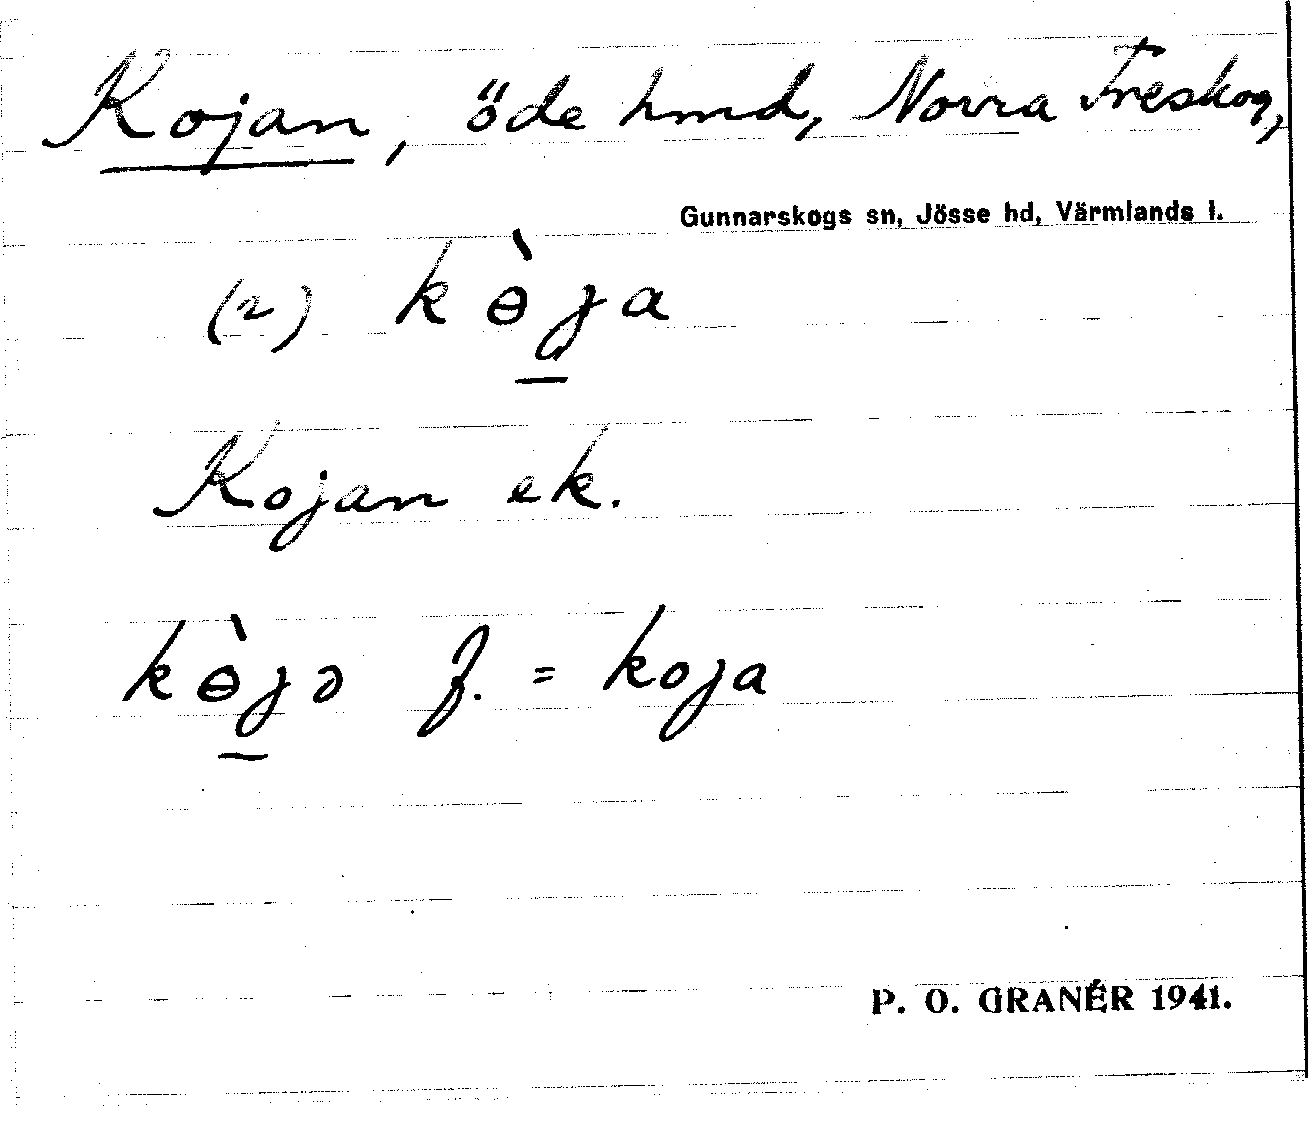 Kojan, öde hmd, Norra Treskog,
Gunnarskogs sn, Jösse hd, Värmlands l.
(2) kɵ̀j̱a
Kojan ek.
kɵ̀j̱ə f. = koja
P. O. GRANÉR 1941.